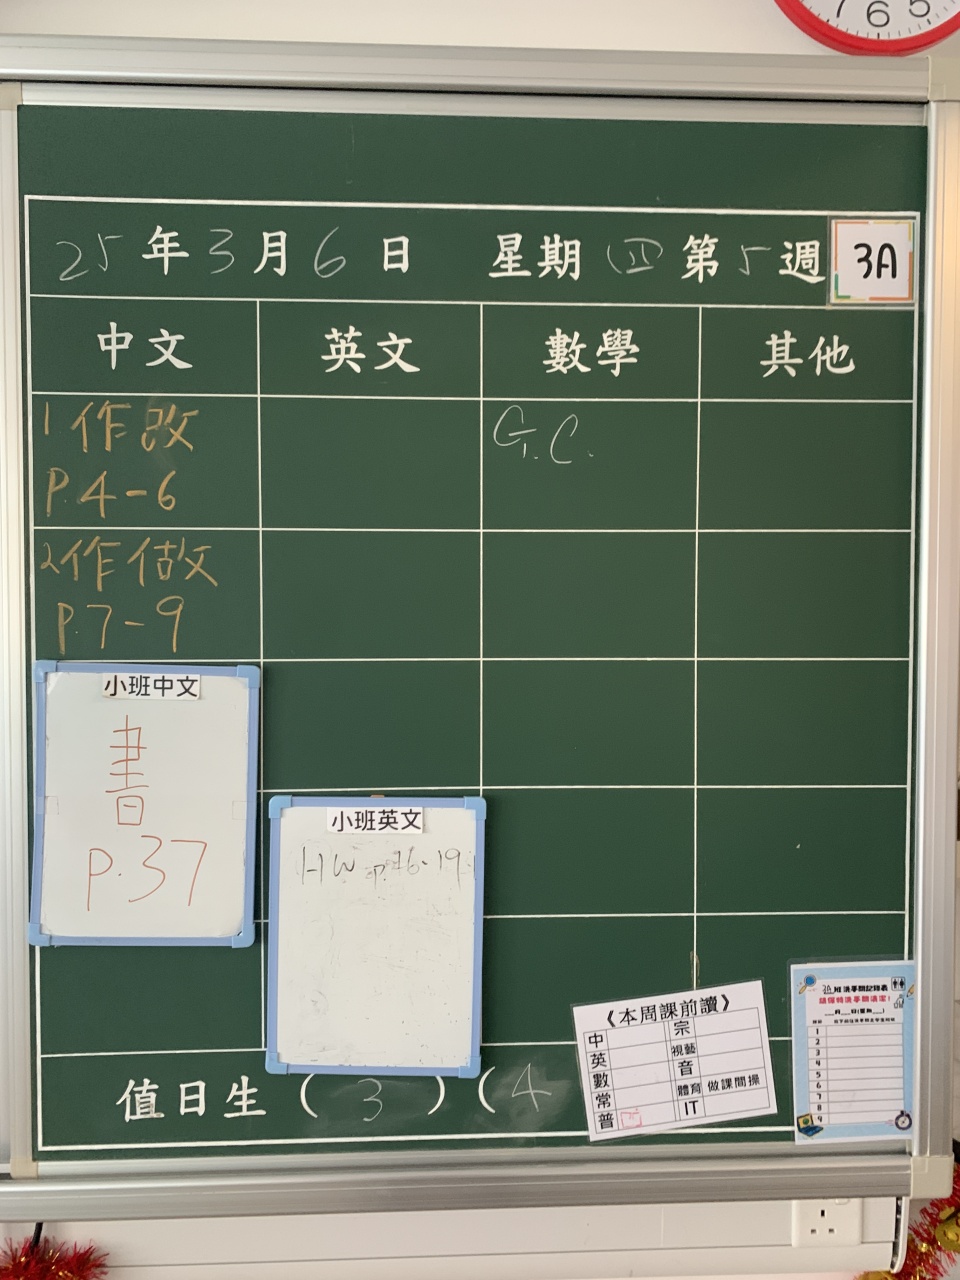 7 6 5
25年3月6日 星期四第5週 3A
中文 英文 數學 其他
1作改
P.4-6
G.C.
2作做
P.7-9
小班中文
書
P.37
小班英文
HW p.16-19
《本周課前讀》
中 宗
英 視藝
數 音
常 體育 做課間操
普 IT
3A班洗手間記錄表
請保持洗手間清潔！
__月__日(星期__)
1
2
3
4
5
6
7
8
9
值日生（3）（4